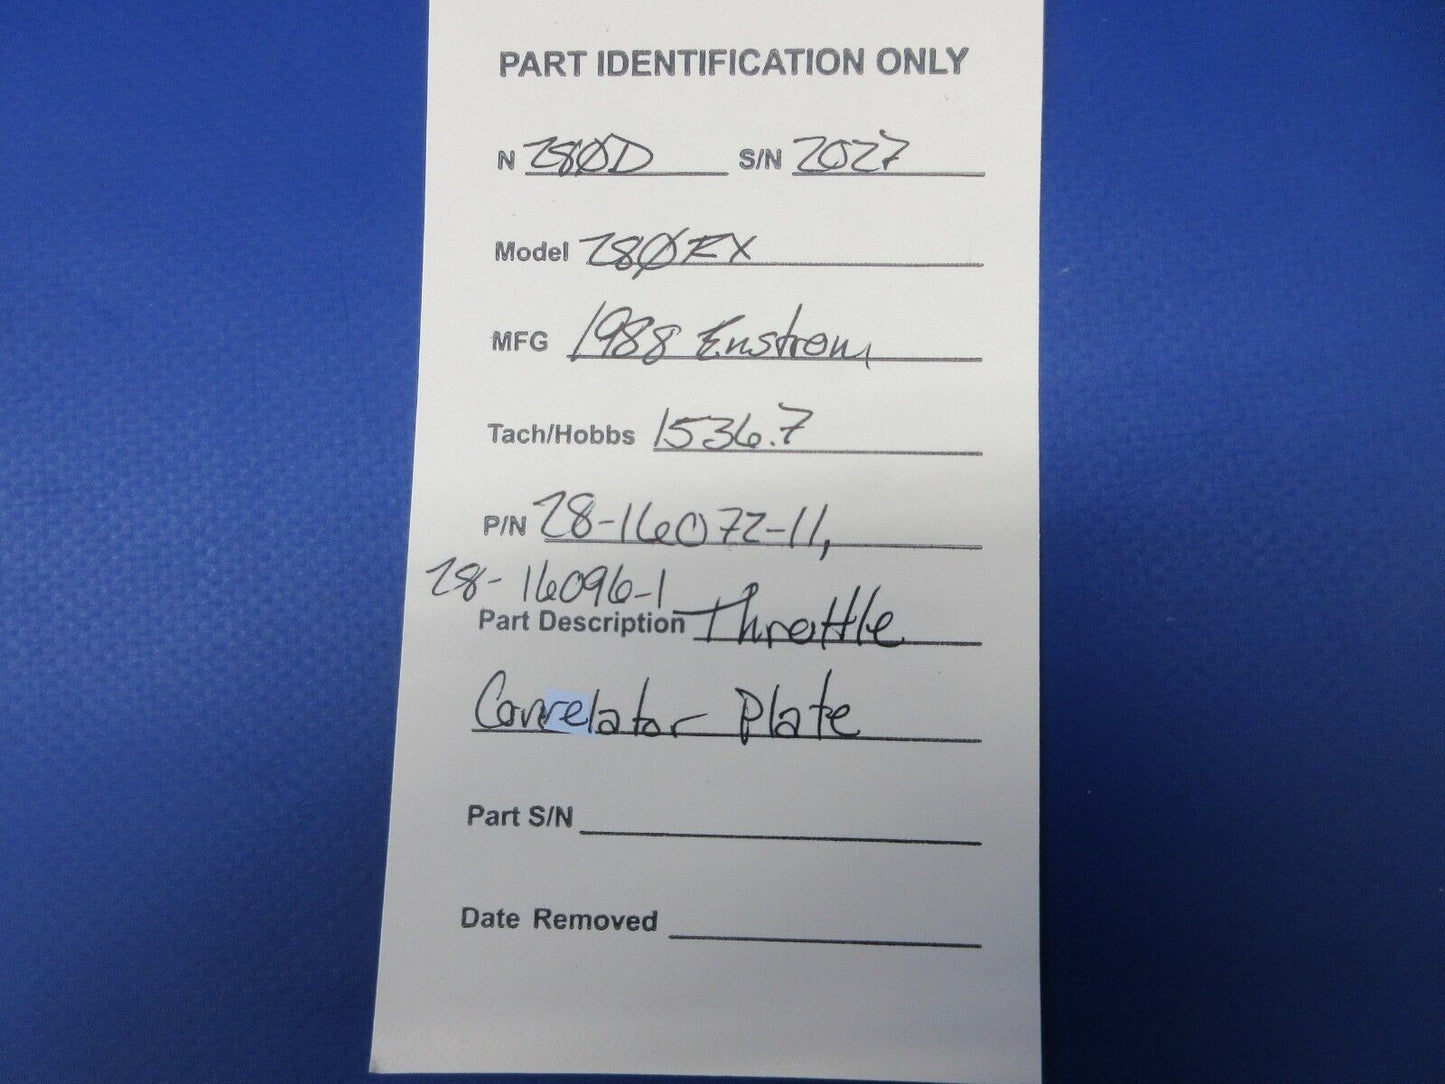 PART IDENTIFICATION ONLY
N 280D S/N 2027
Model 280FX
MFG 1988 Enstrom
Tach/Hobbs 1536.7
P/N 28-16072-11,
28-16096-1
Part Description Throttle
Correlator Plate
Part S/N
Date Removed